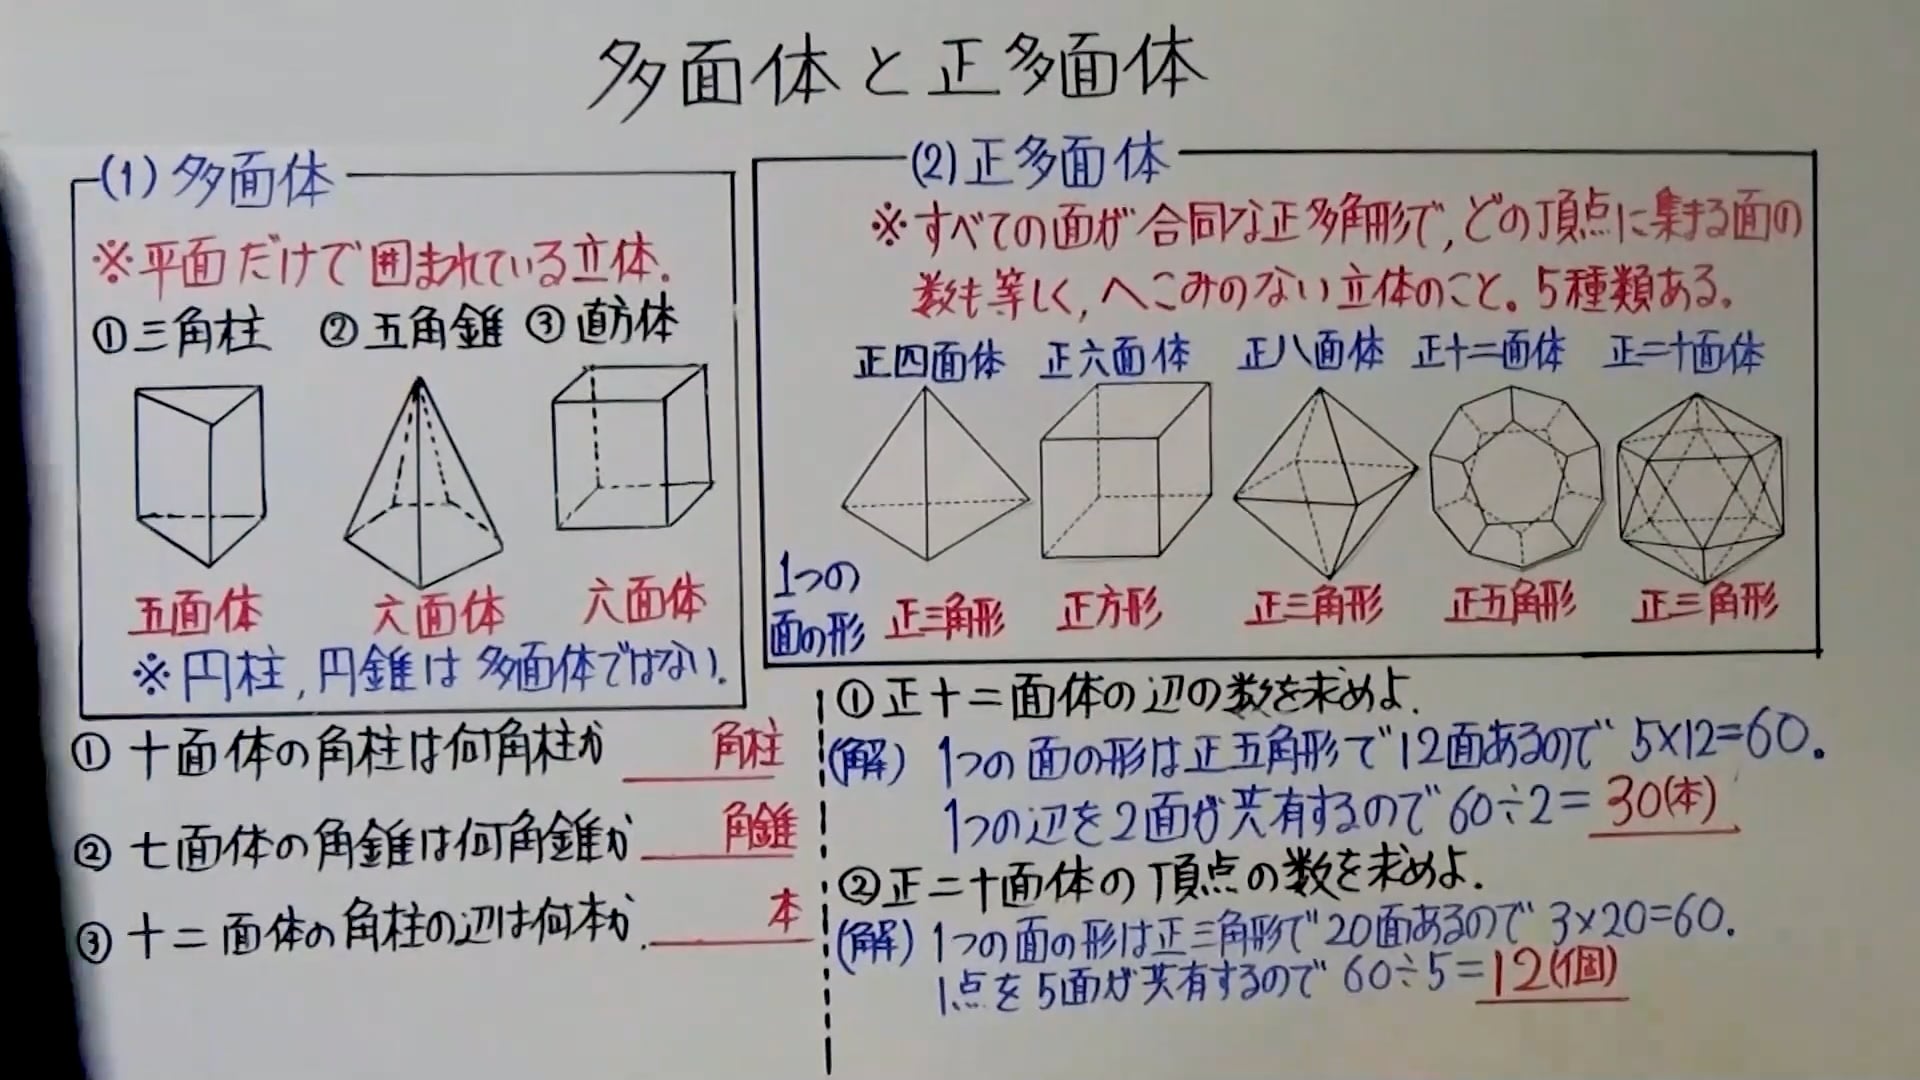 多面体と正多面体
(1)多面体
※平面だけで囲まれている立体.
①三角柱 ②五角錐 ③直方体
五面体 六面体 六面体
※円柱,円錐は多面体ではない.
(2)正多面体
※すべての面が合同な正多角形で,どの頂点に集まる面の
数も等しく,へこみのない立体のこと。5種類ある。
正四面体 正六面体 正八面体 正十二面体 正二十面体
1つの
面の形 正三角形 正方形 正三角形 正五角形 正三角形
①十面体の角柱は何角柱か 角柱
②七面体の角錐は何角錐か 角錐
③十二面体の角柱の辺は何本か. 本
①正十二面体の辺の数を求めよ.
(解) 1つの面の形は正五角形で12面あるので 5×12=60.
1つの辺を2面が共有するので 60÷2=30(本)
②正二十面体の頂点の数を求めよ.
(解) 1つの面の形は正三角形で20面あるので 3×20=60.
1点を5面が共有するので 60÷5=12(個)